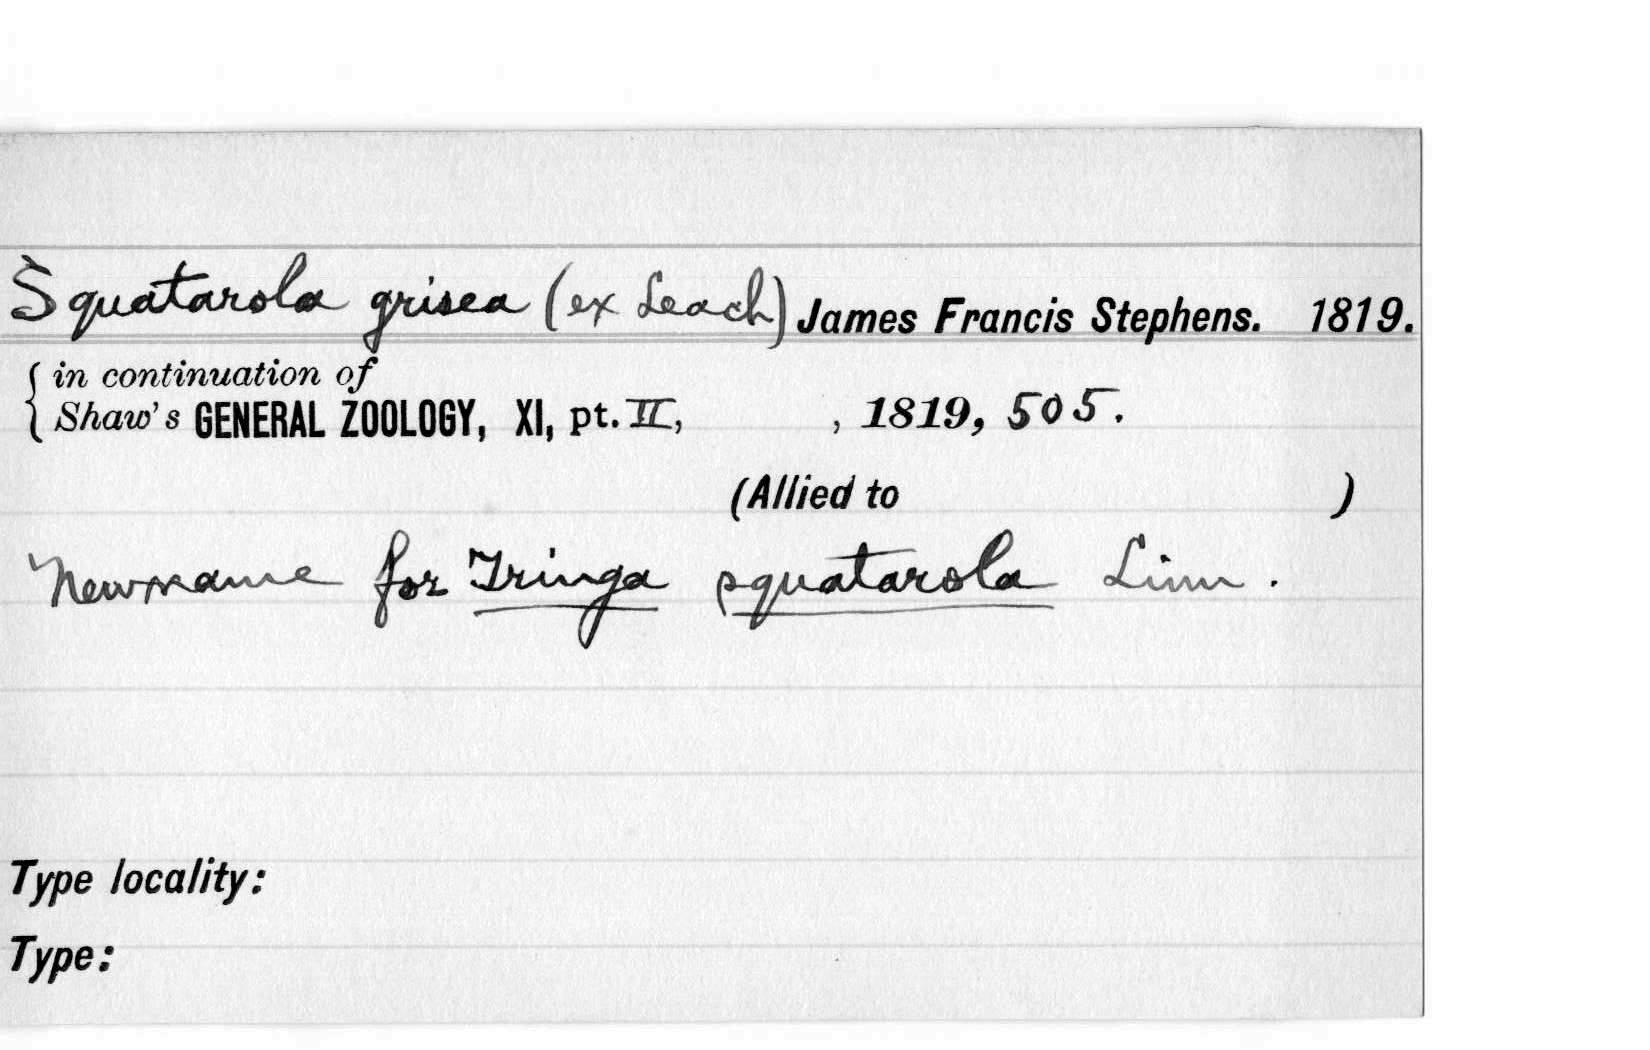 Squatarola grisea (ex Leach) James Francis Stephens. 1819.
in continuation of
Shaw's GENERAL ZOOLOGY, XI, pt. II, , 1819, 505.
(Allied to )
New name for Tringa squatarola Linn.
Type locality:
Type: